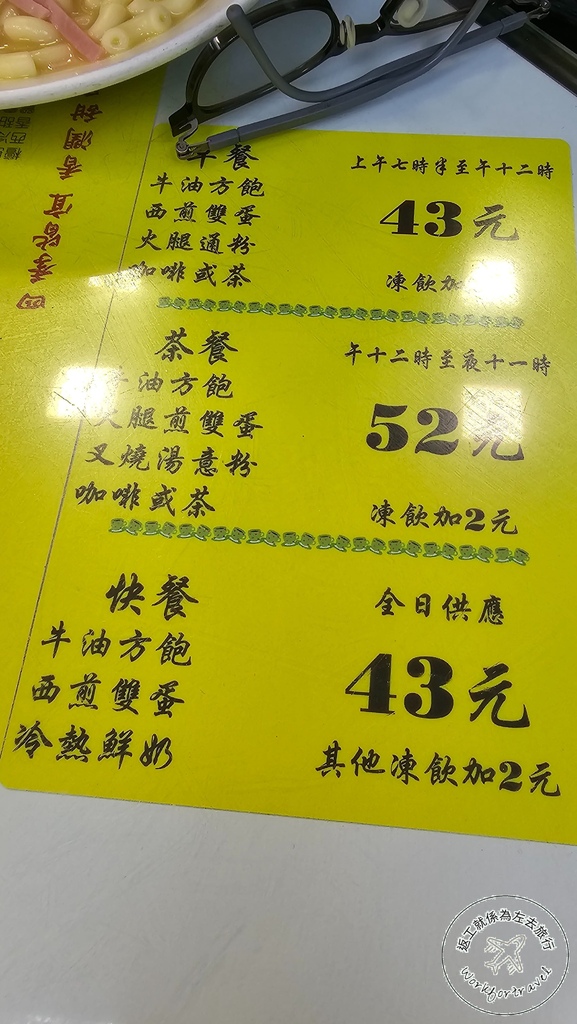 四季皆宜 香潤甜
餐
牛油方飽
西煎雙蛋
火腿通粉
咖啡或茶
上午七時半至午十二時
43元
凍飲加
茶餐
牛油方飽
火腿煎雙蛋
叉燒湯意粉
咖啡或茶
午十二時至夜十一時
52元
凍飲加2元
快餐
牛油方飽
西煎雙蛋
冷熱鮮奶
全日供應
43元
其他凍飲加2元
返工就係為左去旅行
Workfortravel